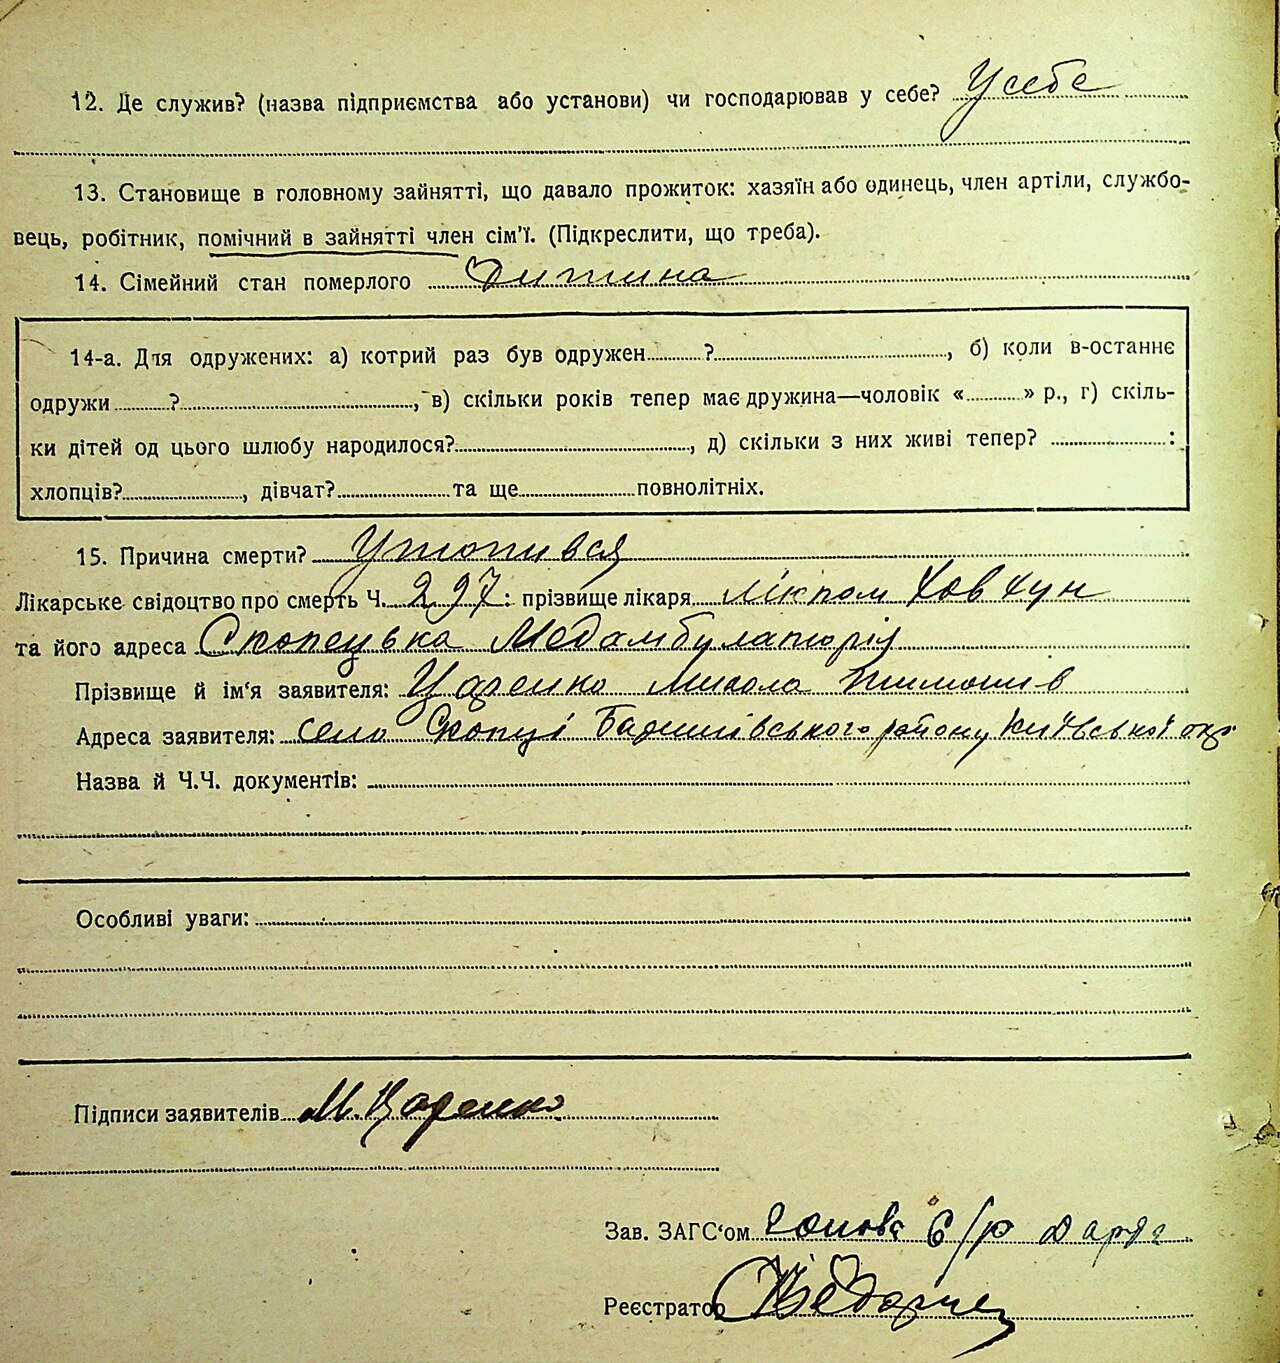 12. Де служив? (назва підприємства або установи) чи господарював у себе? У себе
13. Становище в головному зайнятті, що давало прожиток: хазяїн або одинець, член артіли, службо-
вець, робітник, помічний в зайнятті член сім'ї. (Підкреслити, що треба).
14. Сімейний стан померлого Дитина
14-а. Для одружених: а) котрий раз був одружен ? , б) коли в-останнє
одружи ? , в) скільки років тепер має дружина—чоловік « » р., г) скіль-
ки дітей од цього шлюбу народилося? , д) скільки з них живі тепер? :
хлопців? , дівчат? та ще повнолітніх.
15. Причина смерти? Утопився
Лікарське свідоцтво про смерть Ч. 297: прізвище лікаря лікпом Ховхун
та його адреса Скопецька Медамбулаторія
Прізвище й ім'я заявителя: Царенко Микола Тимошів
Адреса заявителя: село Скопці Баришівського району Київської окр
Назва й Ч.Ч. документів:
Особливі уваги:
Підписи заявителів М. Царенко
Зав. ЗАГС'ом Голова С/р
Реєстратор